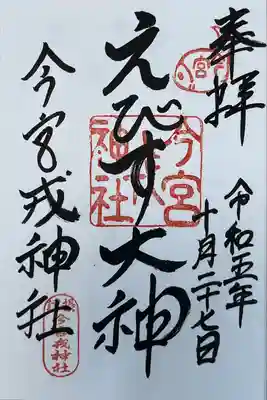 奉拝
令和五年
十月二十七日
えびす大神
今宮戎神社
宮
今宮戎神社
今宮戎神社